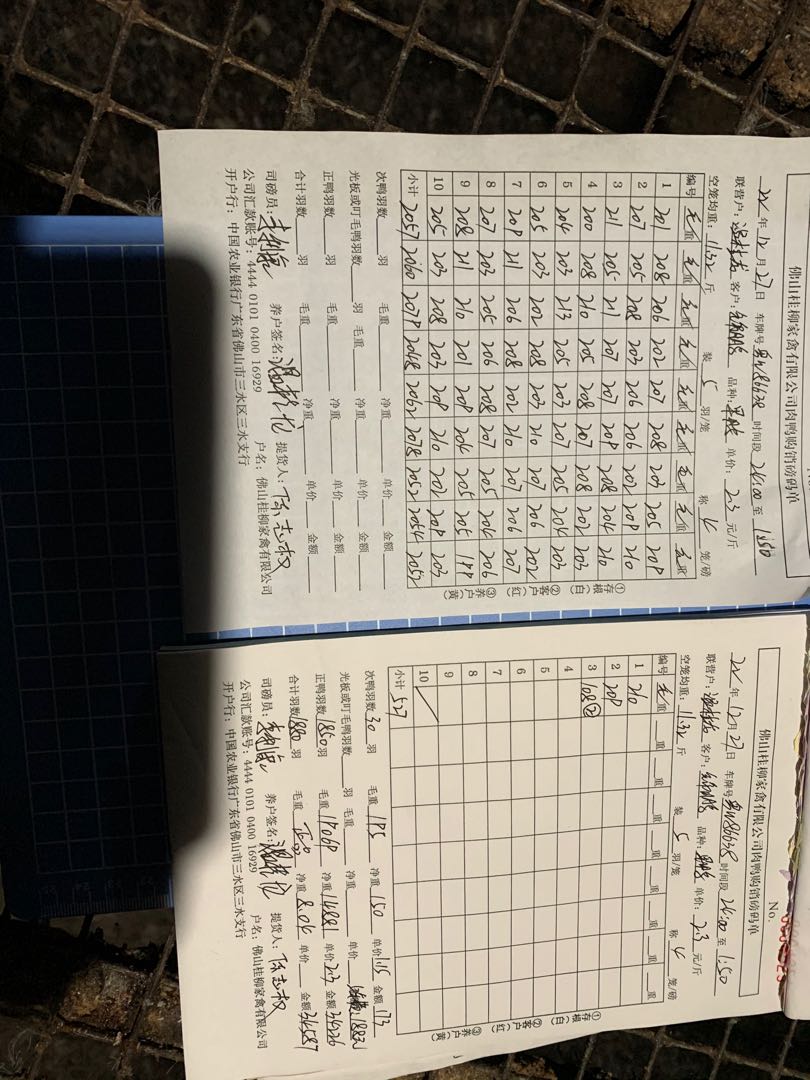 佛山桂柳家禽有限公司肉鸭购销磅码单
22年12月27日 车牌号 时间段 24:00 至 1:50
联营户: 客户: 品种: 单价: 23 元/斤
空笼均重: 11.32 斤 装 5 羽/笼 称 4 笼/磅
编号 毛重 毛重 毛重 毛重 毛重 毛重 毛重 毛重 毛重
1 201 208 206 202 207 208 207 205 209
2 207 205 208 203 206 206 202 209 210
3 211 205 211 207 207 209 208 204 210
4 200 208 210 205 208 207 208 202 203
5 204 203 213 205 203 207 205 204 203
6 205 203 202 208 203 210 207 206 202
7 209 211 206 208 202 210 207 206 207
8 207 203 205 206 208 207 205 204 206
9 208 211 210 201 209 204 205 205 199
10 205 203 208 203 209 210 202 209 203
小计 2057 2060 2079 2048 2062 2078 2052 2054 2052
①存根(白) ②客户(红) ③养户(黄)
次鸭羽数 羽 毛重 净重 单价 金额
光板或叮毛鸭羽数 羽 毛重 净重 单价 金额
正鸭羽数 羽 毛重 净重 单价 金额
合计羽数 羽 毛重 净重 单价 金额
司磅员: 养户签名: 提货人: 陈志权
公司汇款账号: 4444 0101 0400 16929 户名: 佛山桂柳家禽有限公司
开户行: 中国农业银行广东省佛山市三水区三水支行
No.
佛山桂柳家禽有限公司肉鸭购销磅码单
22年12月27日 车牌号 时间段 24:00 至 1:50
联营户: 客户: 品种: 单价: 23 元/斤
空笼均重: 11.32 斤 装 5 羽/笼 称 4 笼/磅
编号 毛重 重 重 重 重 重 重 重 重
1 210
2 209
3 108②
4
5
6
7
8
9
10
小计 527
①存根(白) ②客户(红) ③养户(黄)
次鸭羽数 30 羽 毛重 195 净重 150 单价 1.15 金额 173
光板或叮毛鸭羽数 羽 毛重 净重 单价
正鸭羽数 1850 羽 毛重 19069 净重 14881 单价 23 金额 34226
合计羽数 1880 羽 毛重 净重 8.04 单价 金额 34587
司磅员: 养户签名: 提货人: 陈志权
公司汇款账号: 4444 0101 0400 16929 户名: 佛山桂柳家禽有限公司
开户行: 中国农业银行广东省佛山市三水区三水支行